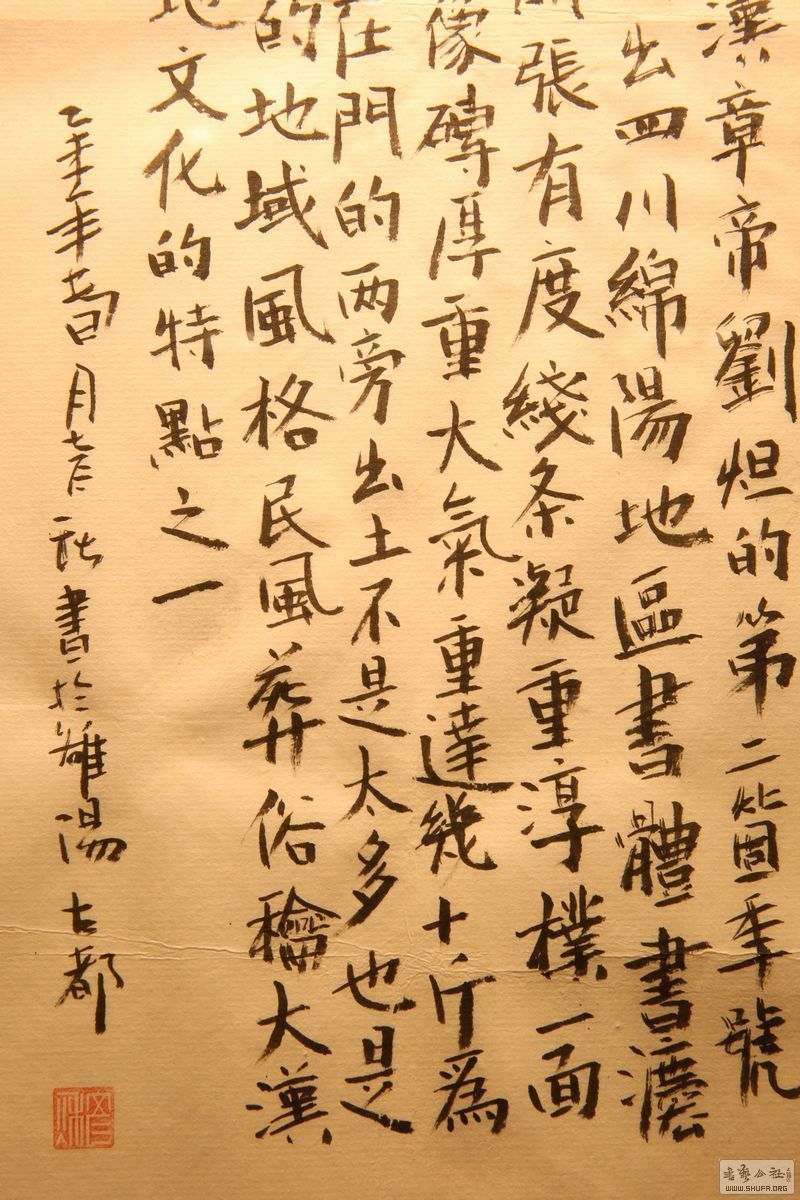 漢章帝劉炟的第二箇年號
出四川綿陽地區書體書灋
張有度綫条凝重淳樸一面
像磚厚重大氣重達幾十斤爲
在門的两旁出土不是太多也是
的地域風格民風葬俗大漢
地文化的特點之一
乙未年月書於雒陽古都
WWW.SHUFA.ORG